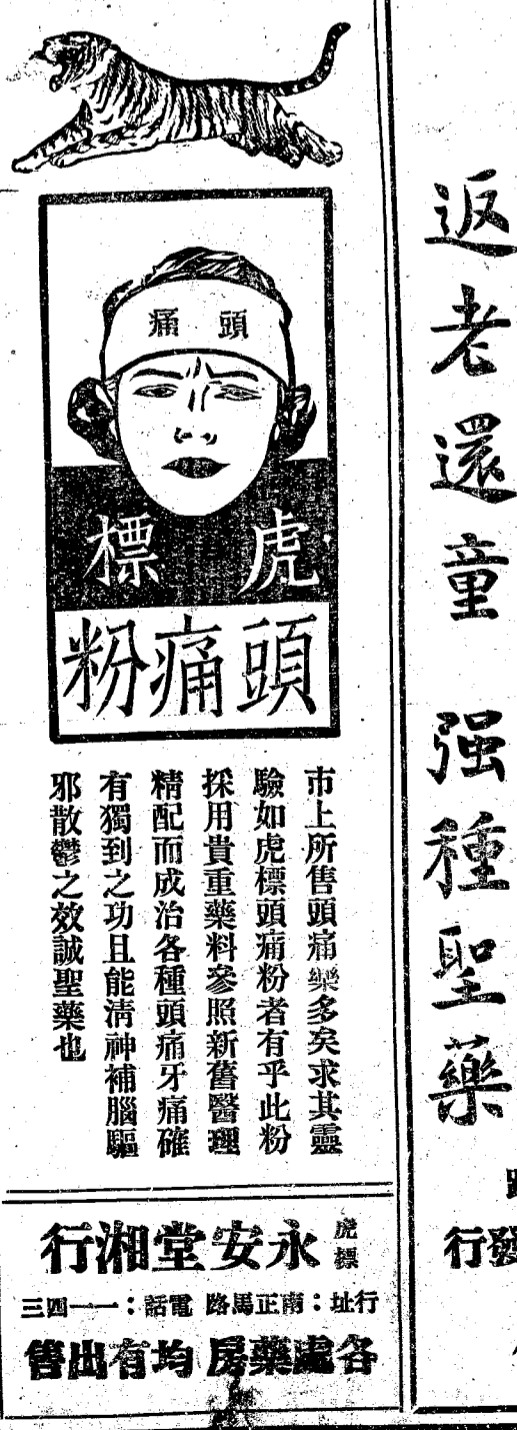 頭痛
虎標
頭痛粉
市上所售頭痛藥多矣求其靈
驗如虎標頭痛粉者有乎此粉
採用貴重藥料參照新舊醫理
精配而成治各種頭痛牙痛確
有獨到之功且能清神補腦驅
邪散鬱之效誠聖藥也
虎標
永安堂湘行
行址：南正馬路 電話：一一四三
各處藥房均有出售
返老還童 强種聖藥